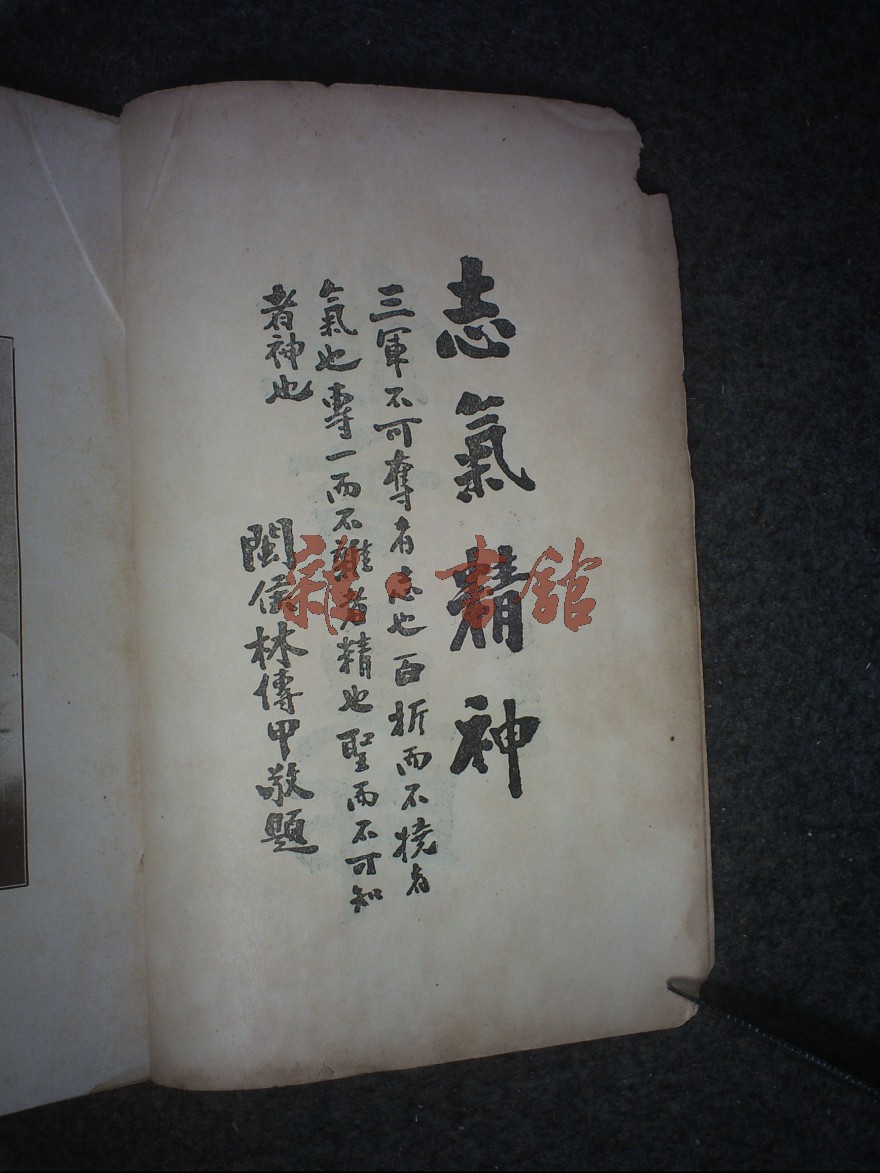 志氣精神
三軍不可奪者志也百折而不撓者
氣也專一而不雜者精也聖而不可知
者神也
閩侯林傳甲敬題
雜·書館